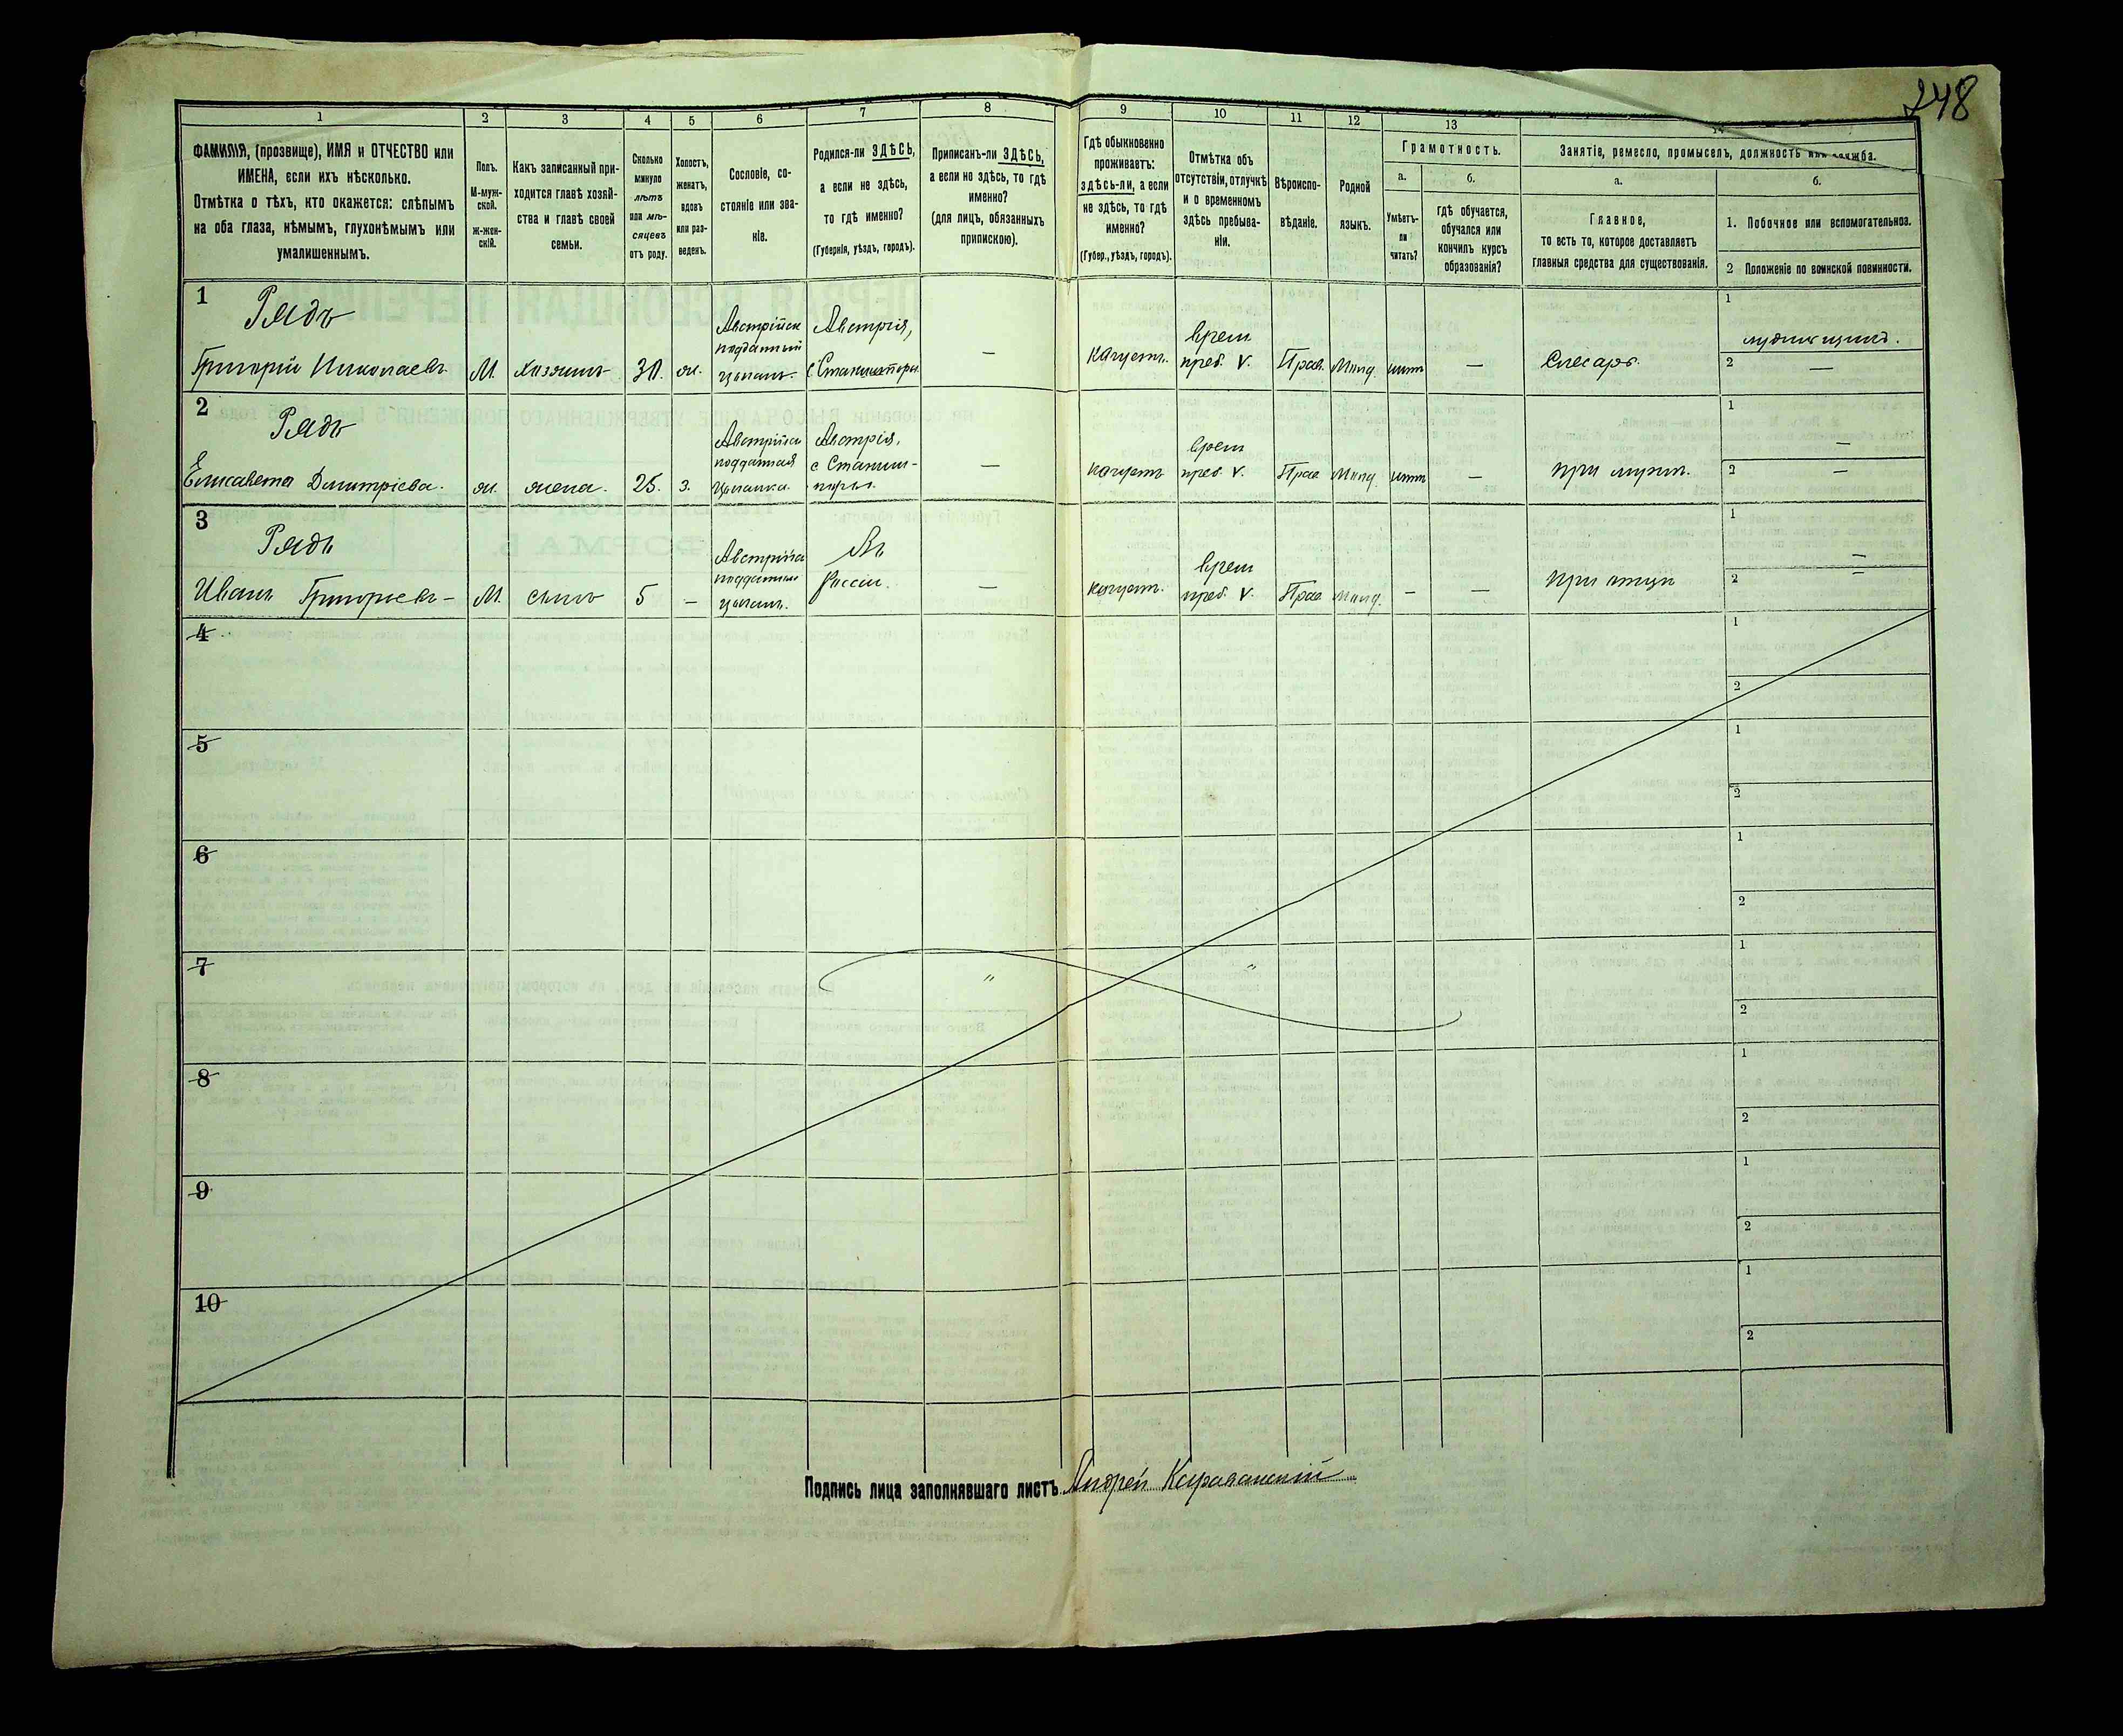 248
1 2 3 4 5 6 7 8 9 10 11 12 13 14
ФАМИЛІЯ, (прозвище), ИМЯ и ОТЧЕСТВО или
ИМЕНА, если ихъ нѣсколько.
Отмѣтка о тѣхъ, кто окажется: слѣпымъ
на оба глаза, нѣмымъ, глухонѣмымъ или
умалишеннымъ.
Полъ.
М-муж-
ской.
Ж-жен-
скій.
Какъ записанный при-
ходится главѣ хозяй-
ства и главѣ своей
семьи.
Сколько
минуло
лѣтъ
или мѣ-
сяцевъ
отъ роду.
Холостъ,
женатъ,
вдовъ
или раз-
веденъ.
Сословіе, со-
стояніе или зва-
ніе.
Родился-ли ЗДѢСЬ,
а если не здѣсь,
то гдѣ именно?
(Губернія, уѣздъ, городъ).
Приписанъ-ли ЗДѢСЬ,
а если не здѣсь, то гдѣ
именно?
(для лицъ, обязанныхъ
припискою).
Гдѣ обыкновенно
проживаетъ:
здѣсь-ли, а если
не здѣсь, то гдѣ
именно?
(Губер., уѣздъ, городъ).
Отмѣтка объ
отсутствіи, отлучкѣ
и о временномъ
здѣсь пребыва-
ніи.
Вѣроиспо-
вѣданіе.
Родной
языкъ.
Грамотность.
а.
Умѣетъ-
ли
читать?
б.
гдѣ обучается,
обучался или
кончилъ курсъ
образованія?
Занятіе, ремесло, промыселъ, должность или служба.
а.
Главное,
то есть то, которое доставляетъ
главныя средства для существованія.
б.
1. Побочное или вспомогательное.
2 Положеніе по воинской повинности.
1
Рядъ
Григорій Николаевъ М. хозяинъ 30. ж.
Австрійск
подданный
цыганъ.
Австрія,
—
кочуетъ.
врем
преб. V.
Прав. нѣтъ — Слесарь.
1
2 —
2
Рядъ
Елисавета Дмитріева. ж. жена. 25. з.
Австрійск
подданная
цыганка.
Австрія,
—
кочуетъ
врем
преб. V.
Прав. нѣтъ — при мужѣ.
1 —
2 —
3
Рядъ
Иванъ Григорьевъ – М. сынъ 5 —
Австрійск
подданный
цыганъ.
Въ
Россіи.
—
кочуетъ.
врем
преб. V.
Прав. — — при отцѣ
1 —
2 —
4
1
2
5
1
2
6
1
2
7 " "
1
2
8
1
2
9
1
2
10
1
2
Подпись лица заполнявшаго листъ Андрей